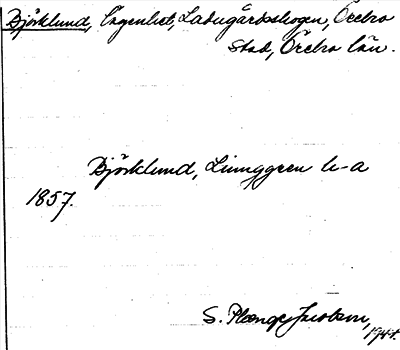 Björklund, Lägenhet, Ladugårdsskogen, Örebro
stad, Örebro län.
Björklund, Linnggren h-a
1857.
S. Plænge Jacobson,